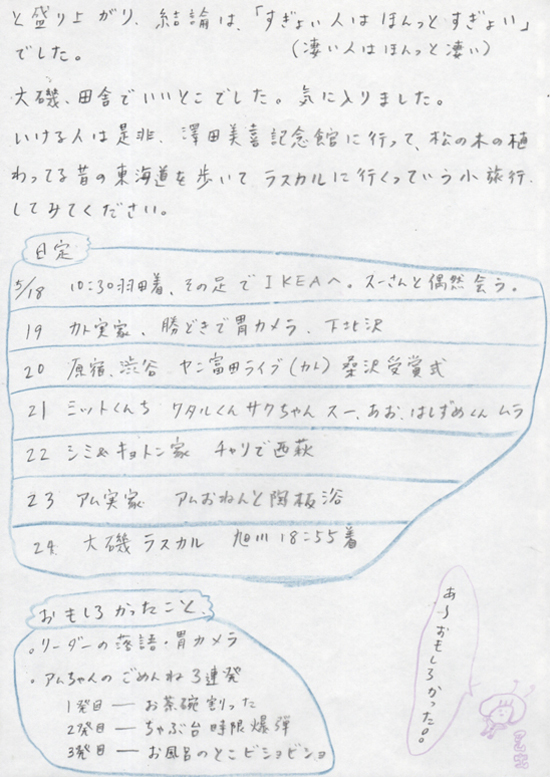 と盛り上がり、結論は、「すぎょい人はほんっとすぎょい」
でした。　　　　　　　（凄い人はほんっと凄い）
大磯、田舎でいいとこでした。気に入りました。
いける人は是非、澤田美喜記念館に行って、松の木の植
わってる昔の東海道を歩いて ラスカルに行くっていう小旅行、
してみてください。
日定
5/18 10:30羽田着、その足でIKEAへ。スーさんと偶然会う。
19 カト実家、勝どきで胃カメラ、下北沢
20 原宿、渋谷 ヤン富田ライブ（カト）桑沢受賞式
21 ミットくんち ワタルくん サクちゃん スー、あお、はしずめくん ムラ
22 シミ&キョトン家 チャリで西荻
23 アム実家 アムおねんと陶板浴
24 大磯ラスカル 旭川18:55着
おもしろかったこと、
。リーダーの落語・胃カメラ
・アムちゃんのごめんね3連発
1発目 ― お茶碗割った
2発目 ― ちゃぶ台時限爆弾
3発目 ― お風呂のとこビショビショ
あ〜おもしろかった。